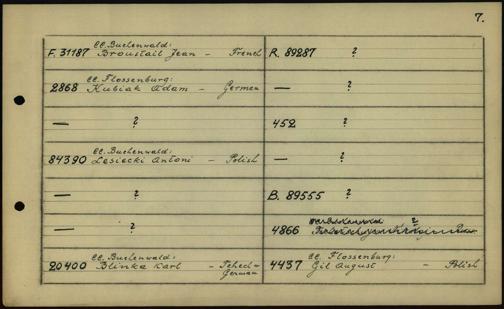 7.
CC. Buchenwald:
F. 31187 Broustail Jean - French R. 89287 ?
CC. Flossenburg:
2868 Kubiak Adam - German — ?
— ? 452 ?
CC. Buchenwald:
84390 Lesiecki Antoni - Polish — ?
— ? B. 89555 ?
— ? 4866 ?
CC. Buchenwald: CC. Flossenburg:
20400 Blinka Karl - Tchech= 4437 Gil August - Polish
German